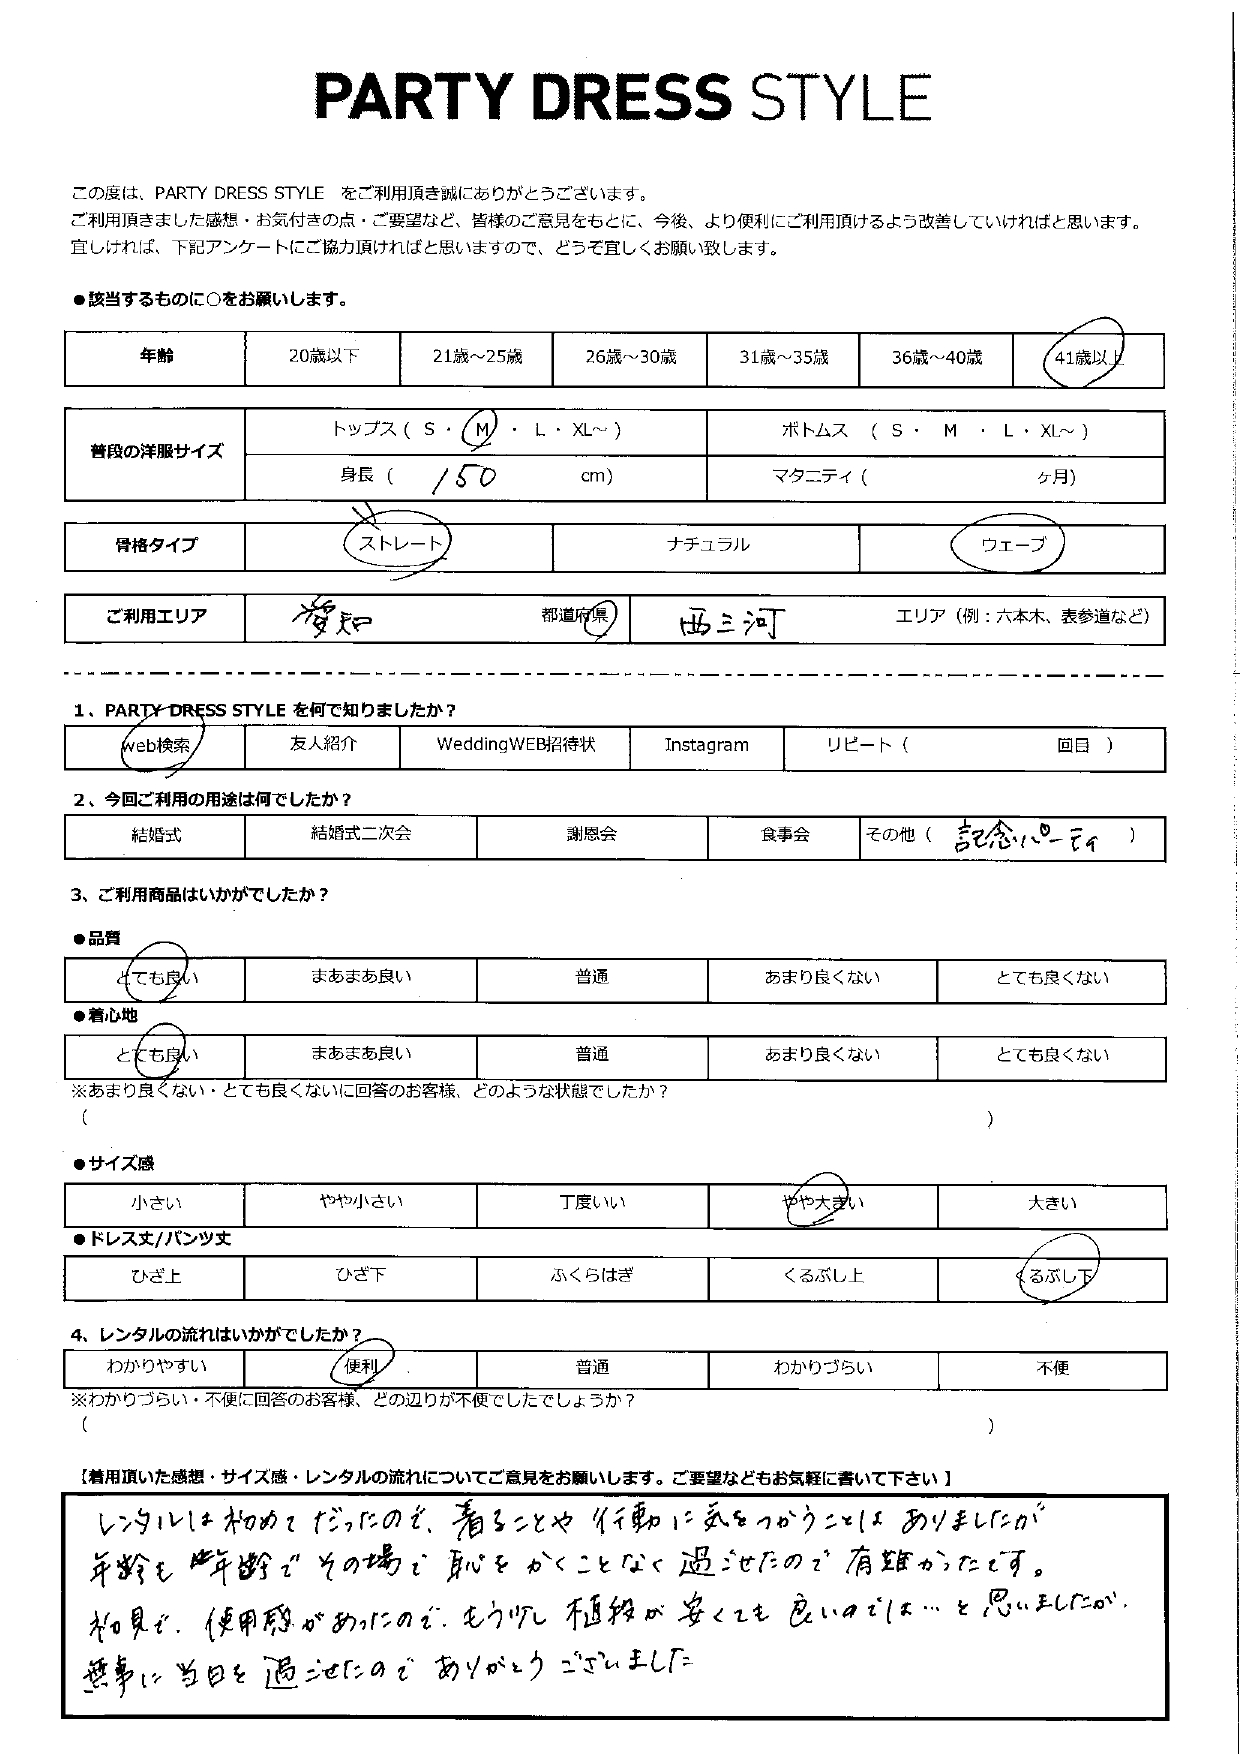 PARTY DRESS STYLE
この度は、PARTY DRESS STYLE をご利用頂き誠にありがとうございます。
ご利用頂きました感想・お気付きの点・ご要望など、皆様のご意見をもとに、今後、より便利にご利用頂けるよう改善していければと思います。
宜しければ、下記アンケートにご協力頂ければと思いますので、どうぞ宜しくお願い致します。
●該当するものに○をお願いします。
年齢 20歳以下 21歳～25歳 26歳～30歳 31歳～35歳 36歳～40歳 41歳以上
普段の洋服サイズ トップス ( S ・ M ・ L ・ XL～ ) ボトムス ( S ・ M ・ L ・ XL～ )
身長 ( 150 cm) マタニティ ( ヶ月)
骨格タイプ ストレート ナチュラル ウェーブ
ご利用エリア 愛知 都道府県 西三河 エリア（例：六本木、表参道など）
1、PARTY DRESS STYLE を何で知りましたか？
web検索 友人紹介 WeddingWEB招待状 Instagram リピート ( 回目 )
2、今回ご利用の用途は何でしたか？
結婚式 結婚式二次会 謝恩会 食事会 その他 ( 記念パーティ )
3、ご利用商品はいかがでしたか？
●品質
とても良い まあまあ良い 普通 あまり良くない とても良くない
●着心地
とても良い まあまあ良い 普通 あまり良くない とても良くない
※あまり良くない・とても良くないに回答のお客様、どのような状態でしたか？
( )
●サイズ感
小さい やや小さい 丁度いい やや大きい 大きい
●ドレス丈/パンツ丈
ひざ上 ひざ下 ふくらはぎ くるぶし上 くるぶし下
4、レンタルの流れはいかがでしたか？
わかりやすい 便利 普通 わかりづらい 不便
※わかりづらい・不便に回答のお客様、どの辺りが不便でしたでしょうか？
( )
【着用頂いた感想・サイズ感・レンタルの流れについてご意見をお願いします。ご要望などもお気軽に書いて下さい】
レンタルは初めてだったので、着ることや行動に気をつかうことはありましたが
年齢も年齢でその場で恥をかくことなく過ごせたので有難かったです。
初見で、使用感があったので、もう少し値段が安くても良いのでは…と思いましたが、
無事に当日を過ごせたのでありがとうございました